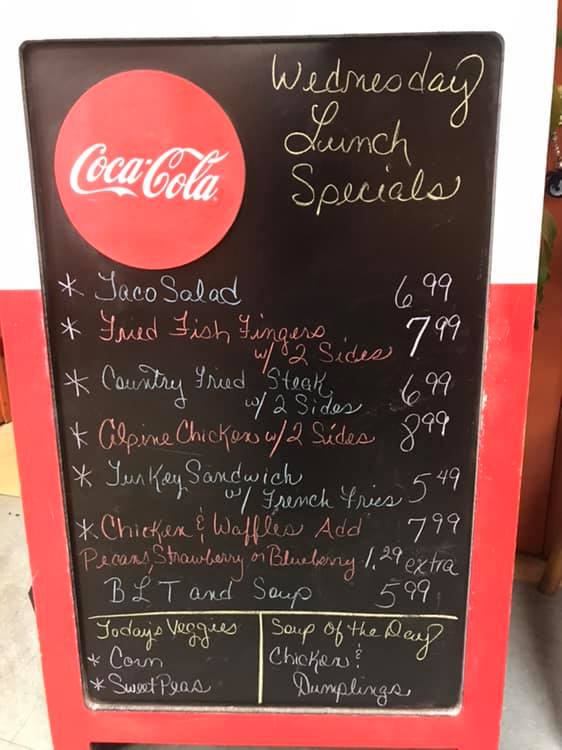 Wednesday
Lunch
Specials
Coca-Cola
* Taco Salad 6.99
* Fried Fish Fingers
w/ 2 Sides 7.99
* Country Fried Steak 6.99
w/ 2 Sides
* Alpine Chicken w/ 2 Sides 8.99
* Turkey Sandwich
w/ French Fries 5.49
* Chicken & Waffles Add 7.99
Pecans, Strawberry or Blueberry 1.29 extra
BLT and Soup 5.99
Today's Veggies
* Corn
* Sweet Peas
Soup of the Day
Chicken &
Dumplings